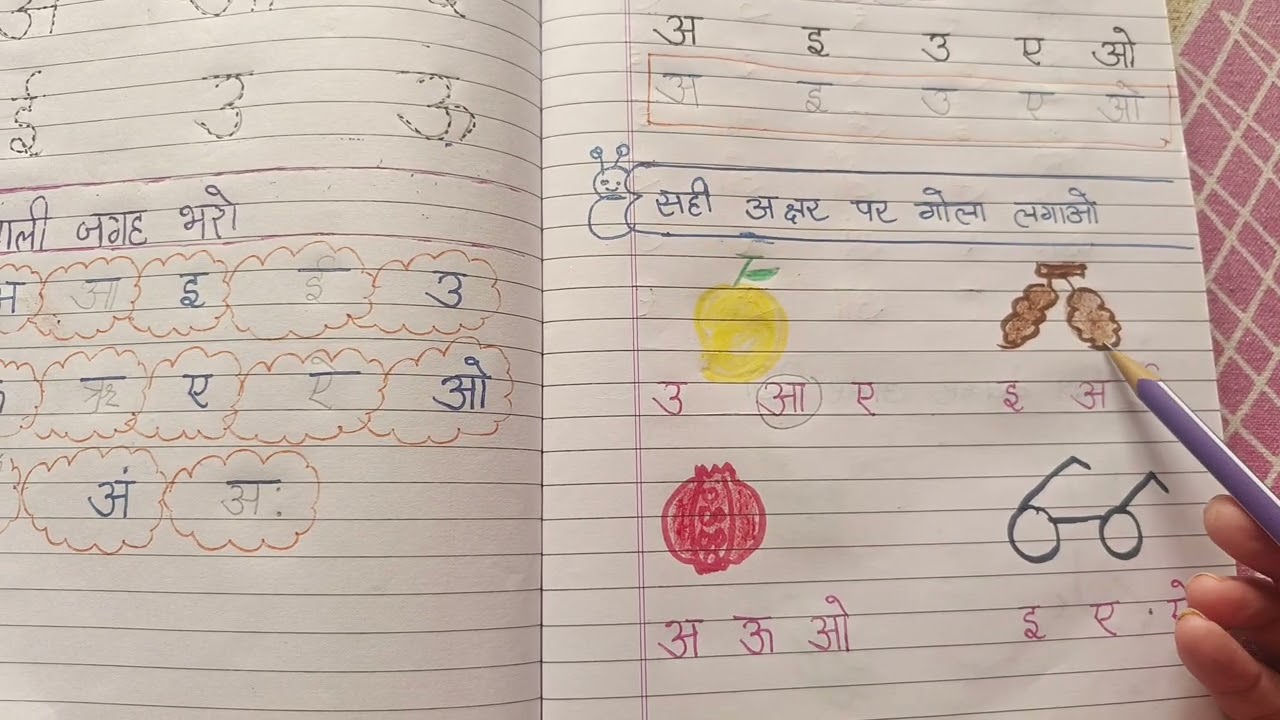 ई उ ऊ
ाली जगह भरो
अ आ इ ई उ
ऋ ए ऐ ओ
अं अः
अ इ उ ए ओ
अ इ उ ए ओ
सही अक्षर पर गोला लगाओ
उ आ ए
इ अ
अ ऊ ओ
इ ए